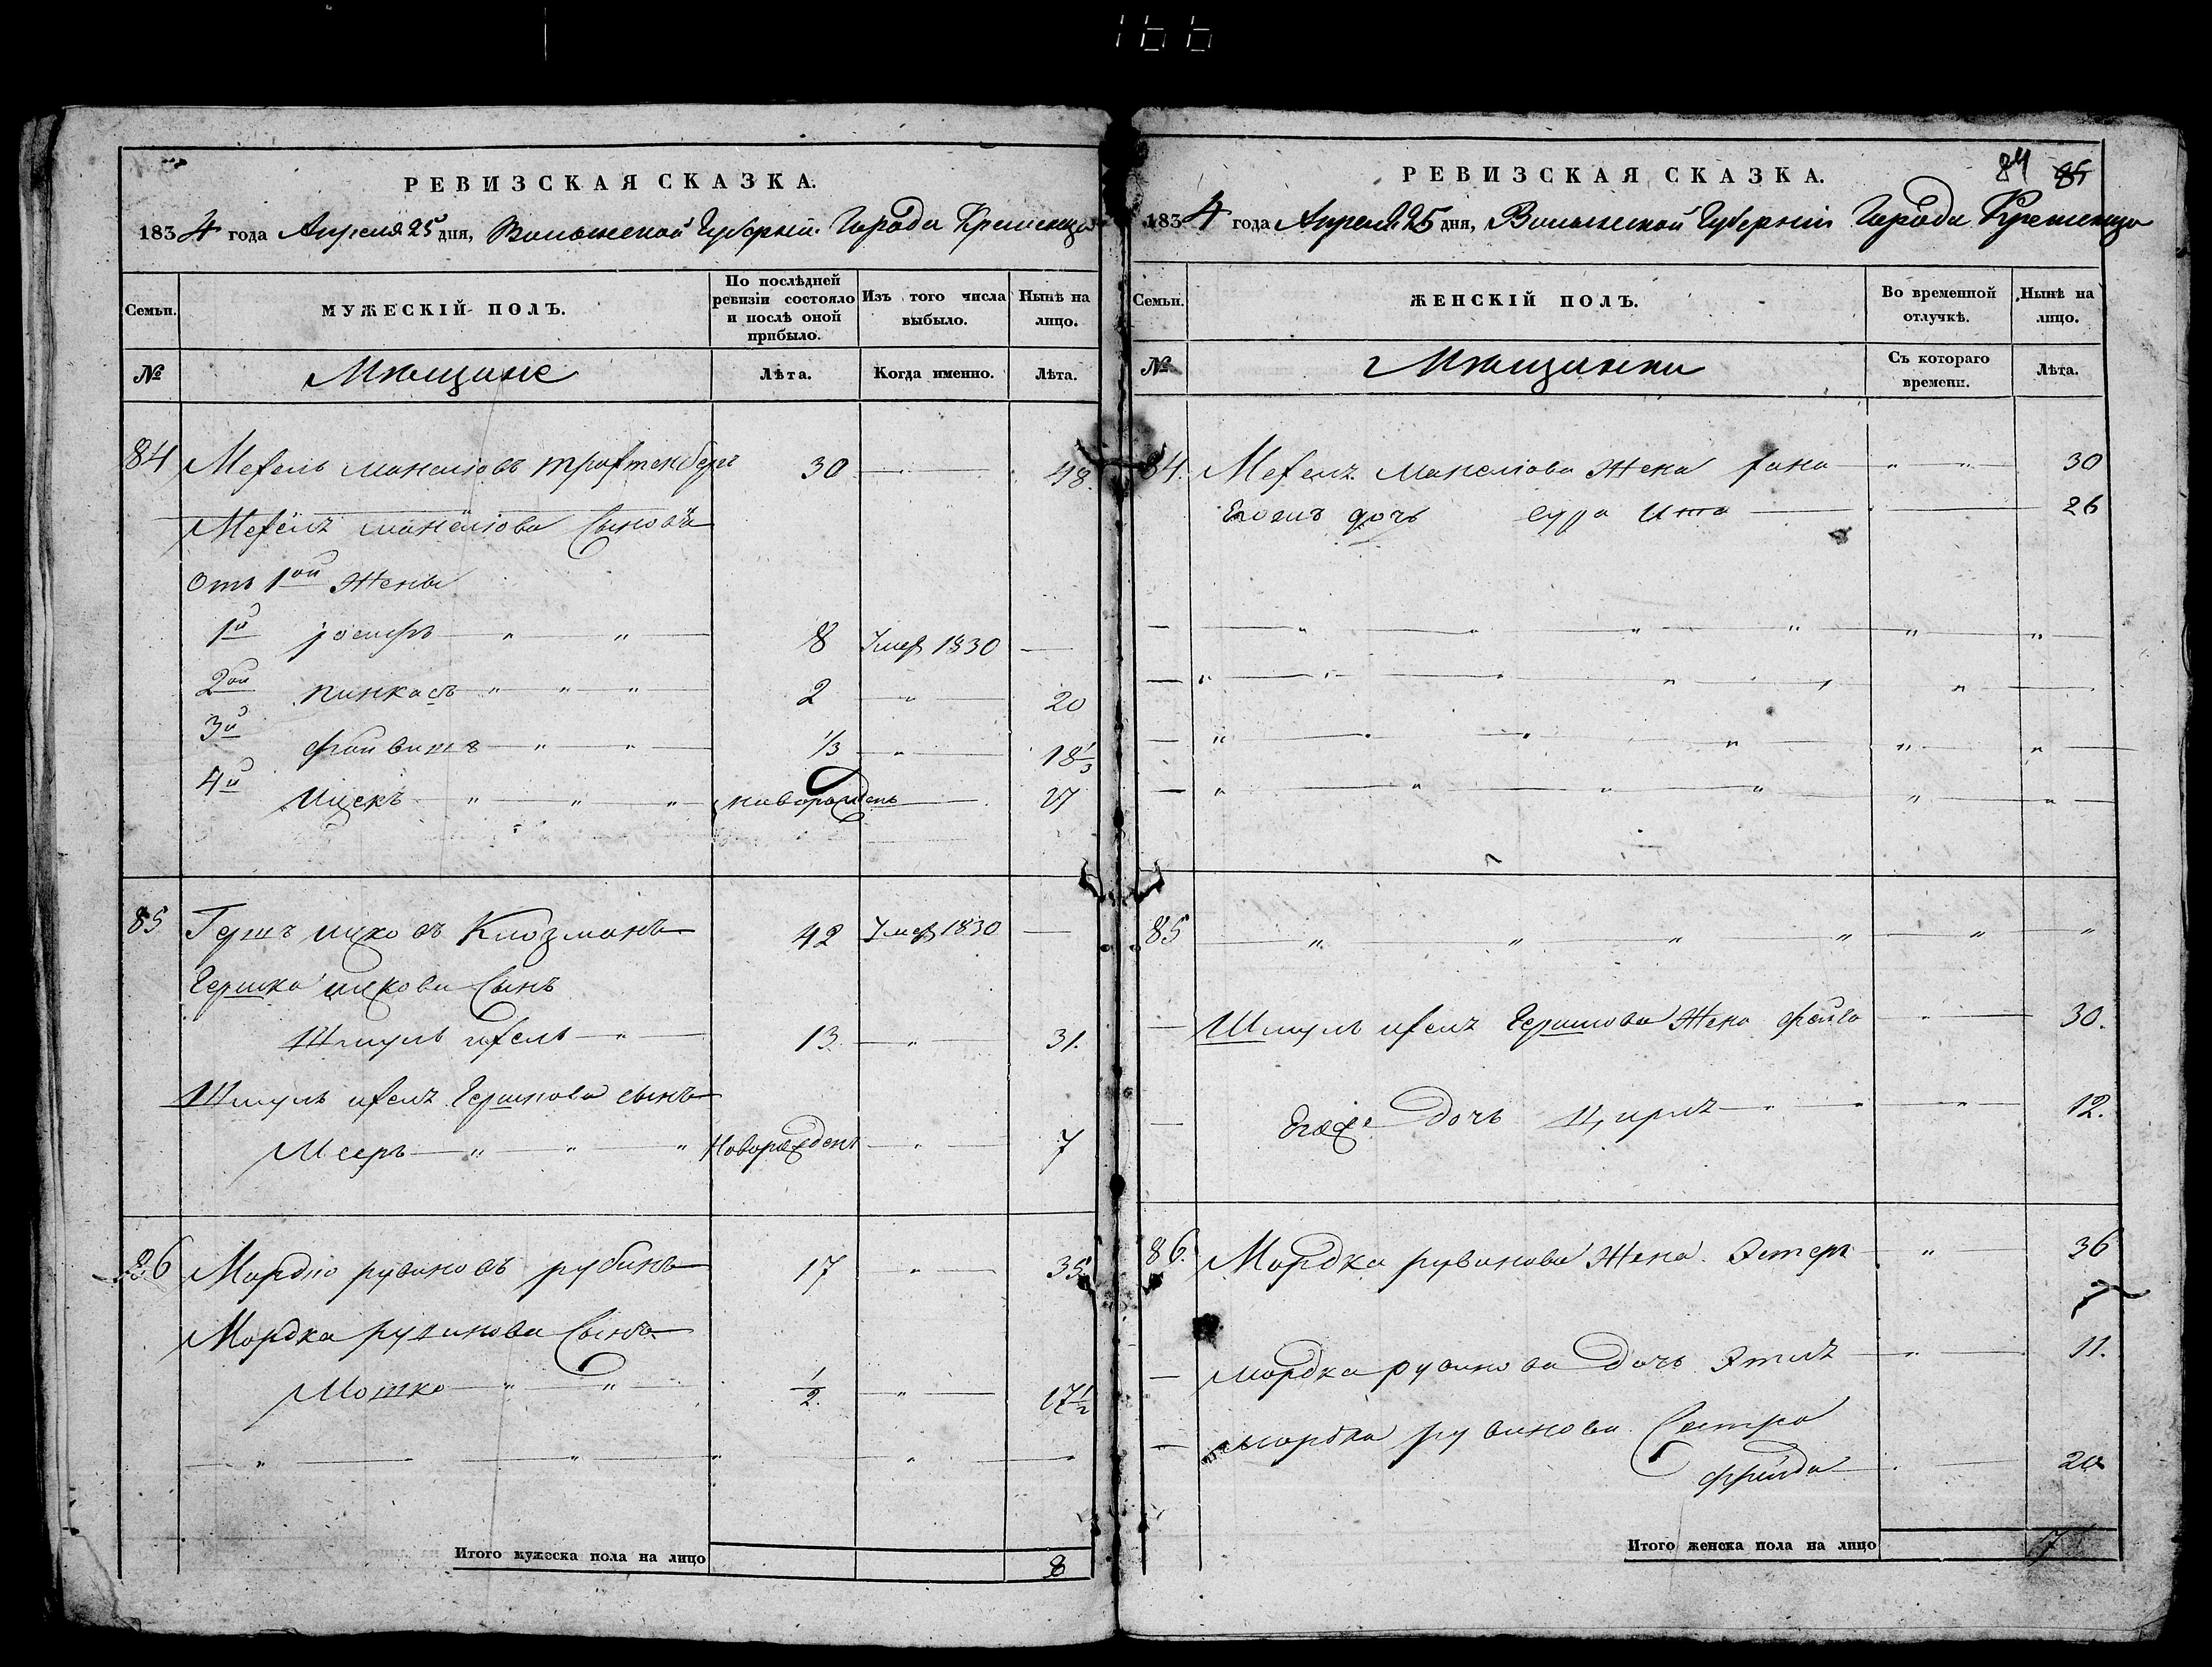 166
РЕВИЗСКАЯ СКАЗКА.
1834 года Апреля 25 дня, Волынской Губерніи Города Кременца
Семьи.
МУЖЕСКІЙ ПОЛЪ.
По послѣдней ревизіи состояло и послѣ оной прибыло.
Изъ того числа выбыло.
Нынѣ на лицо.
№
Мещане
Лѣта.
Когда именно.
Лѣта.
84 Мехель манелiовъ трахтенберг 30 48.
Мехелz манелiова Сыновя
Отъ 1ой Жены
1й іосифъ 8 Умер 1830
2ой пинкасъ 2 20
3й файвишъ 1/3 18 1/3
4й Ицекъ новорожденъ 17
85 Гершъ ицковъ Клозманъ 42 Умер 1830
Гершка ицкова Сынъ
Шмуль ихель 13 31.
Шмуль ихелz Гершкова сынъ
Мееръ Новорожденъ 7
86 Мордко рувиновъ рубинъ 17 35
Мордка рувинова Сынъ
Мошко 1/2 17 1/2
Итого мужеска пола на лицо 8
84 85
РЕВИЗСКАЯ СКАЗКА.
1834 года Апреля 25 дня, Волынской Губерніи Города Кременца
Семьи.
ЖЕНСКІЙ ПОЛЪ.
Во временной отлучкѣ.
Нынѣ на лицо.
№
Мещанки
Съ котораго времени.
Лѣта.
84. Мехелz Манелiова Жена хана 30
дочь сура Ита 26
85
Шмуль ихелz Гершкова Жена фейга 30.
Егоже дочь Цирлz 12.
86. Мордка рувинова Жена Эстеръ 36
мордка рувинова дочь Этилz 11.
мордка рувинова Сестра
фрейда 20
Итого женска пола на лицо 7